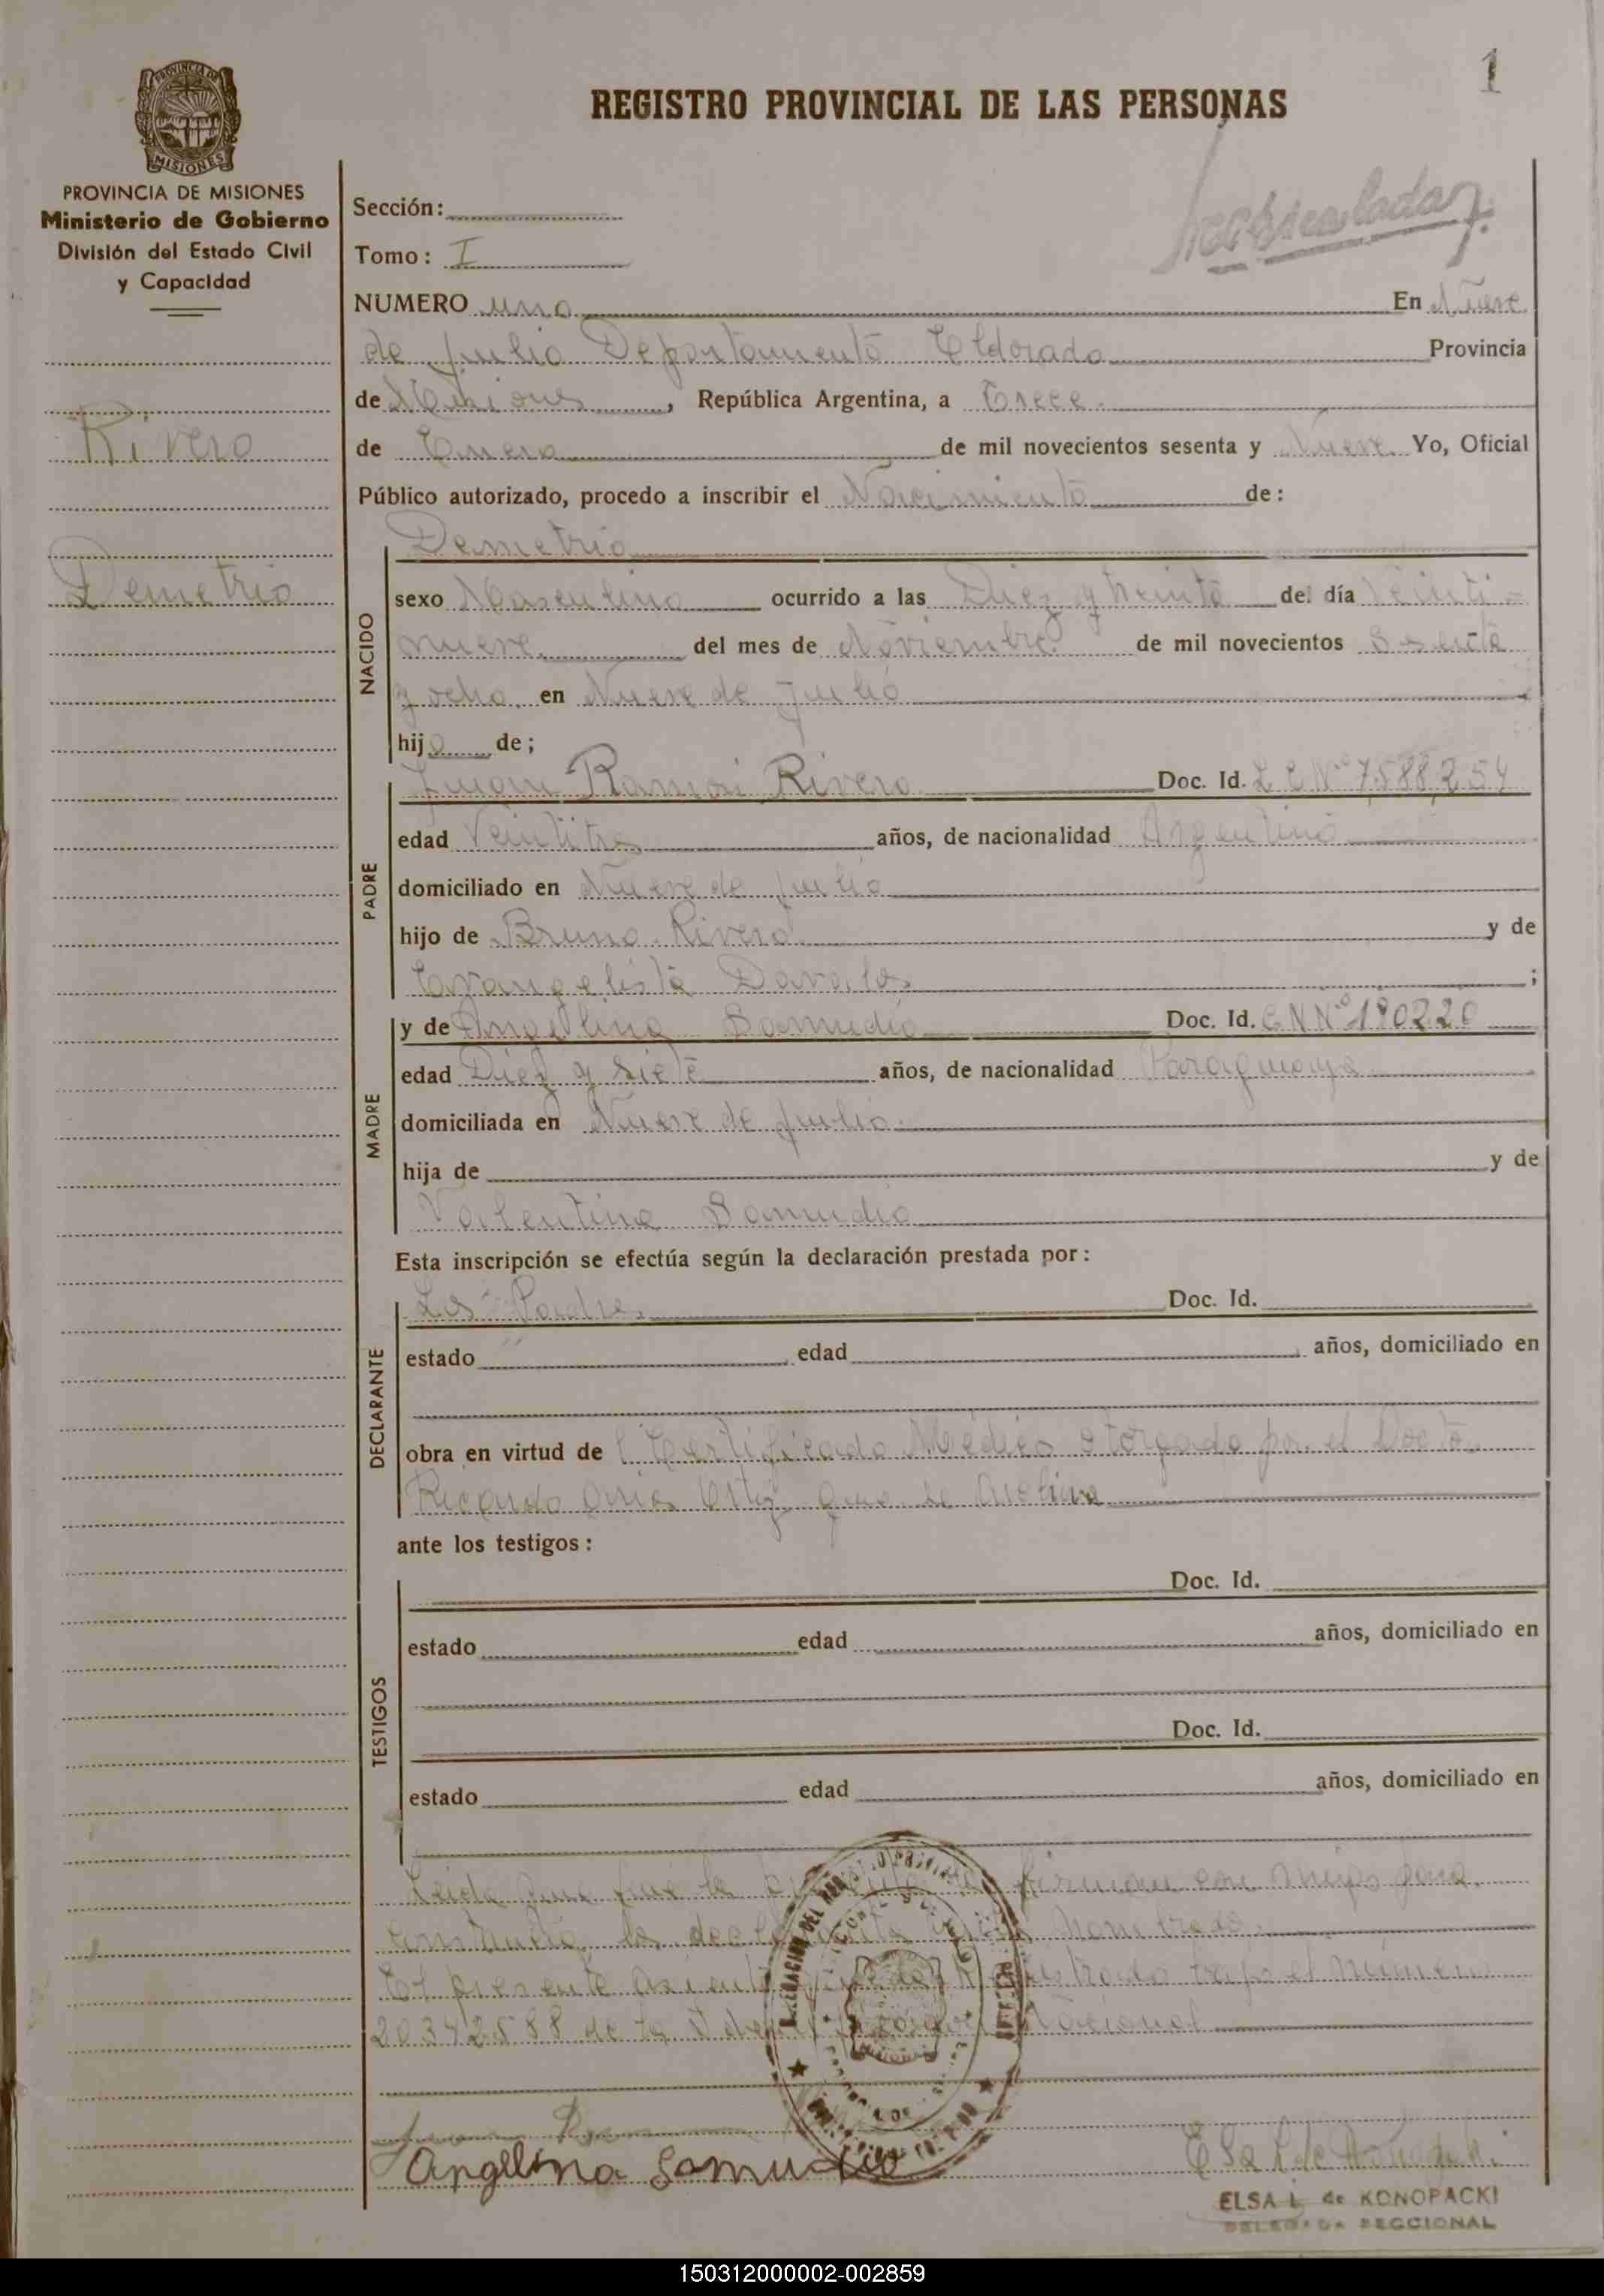 1
PROVINCIA DE
MISIONES
REGISTRO PROVINCIAL DE LAS PERSONAS
PROVINCIA DE MISIONES
Ministerio de Gobierno
División del Estado Civil
y Capacidad
Sección:
Tomo: I
NUMERO uno En Nueve
de Julio Departamento Eldorado Provincia
de Misiones, República Argentina, a Trece
Rivero
de Enero de mil novecientos sesenta y Nueve Yo, Oficial
Público autorizado, procedo a inscribir el Nacimiento de:
Demetrio
Demetrio
NACIDO
sexo Masculino ocurrido a las Diez y treinta del día Veinti-
nueve del mes de Noviembre de mil novecientos Sesenta
y ocho, en Nueve de Julio
hijo de;
PADRE
Ramon Rivero Doc. Id. L E Nº 7.588.254
edad Veintitres años, de nacionalidad Argentina
domiciliado en Nueve de Julio
hijo de Bruno Rivero y de
Evangelista Davalos;
MADRE
y de Angelina Samudio Doc. Id. C N Nº 190220
edad Diez y siete años, de nacionalidad Paraguaya
domiciliada en Nueve de Julio
hija de y de
Valentina Samudio
Esta inscripción se efectúa según la declaración prestada por:
DECLARANTE
Los Padres Doc. Id.
estado edad años, domiciliado en
obra en virtud de l Certificado Médico otorgado por el Doctor
Ricardo Ortiz que se archiva
ante los testigos:
TESTIGOS
Doc. Id.
estado edad años, domiciliado en
Doc. Id.
estado edad años, domiciliado en
Leida que fue la firman con migo para
constancia los nombrados
El presente asiento registrado bajo el número
20342588 de la Nacional
Angelina Samudio
ELSA L. de KONOPACKI
DELEGADA SECCIONAL
150312000002-002859